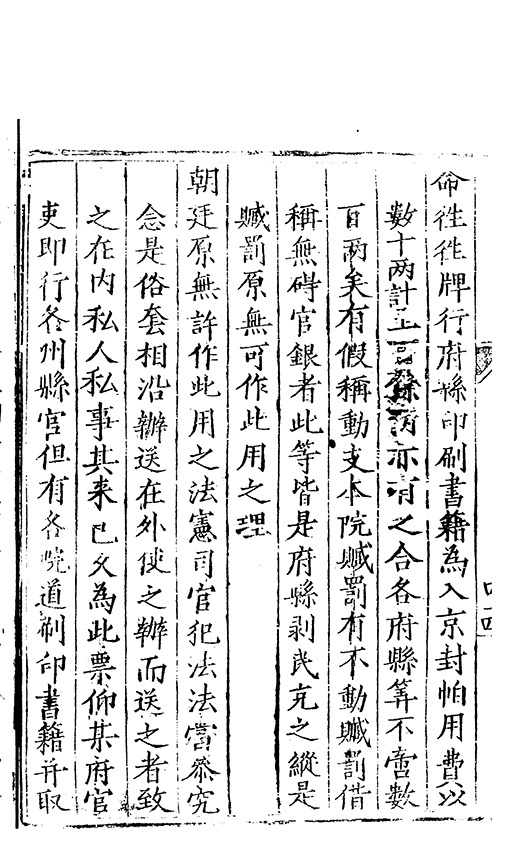 命徃徃牌行府縣印刷書籍為入京封帕用費以
數十兩計上司亦有之合各府縣筭不啻數
百兩矣有假稱動支本院贓罰有不動贓罰借
稱無碍官銀者此等皆是府縣剥民充之縱是
贓罰原無可作此用之理
朝廷原無許作此用之法憲司官犯法法當叅究
念是俗套相沿辦送在外使之辦而送之者致
之在内私人私事其来已久為此票仰某府官
吏即行各州縣官但有各院道刷印書籍并取